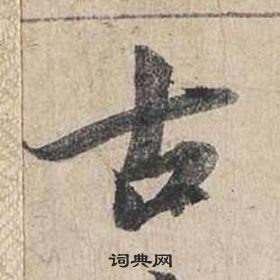 古
词典网